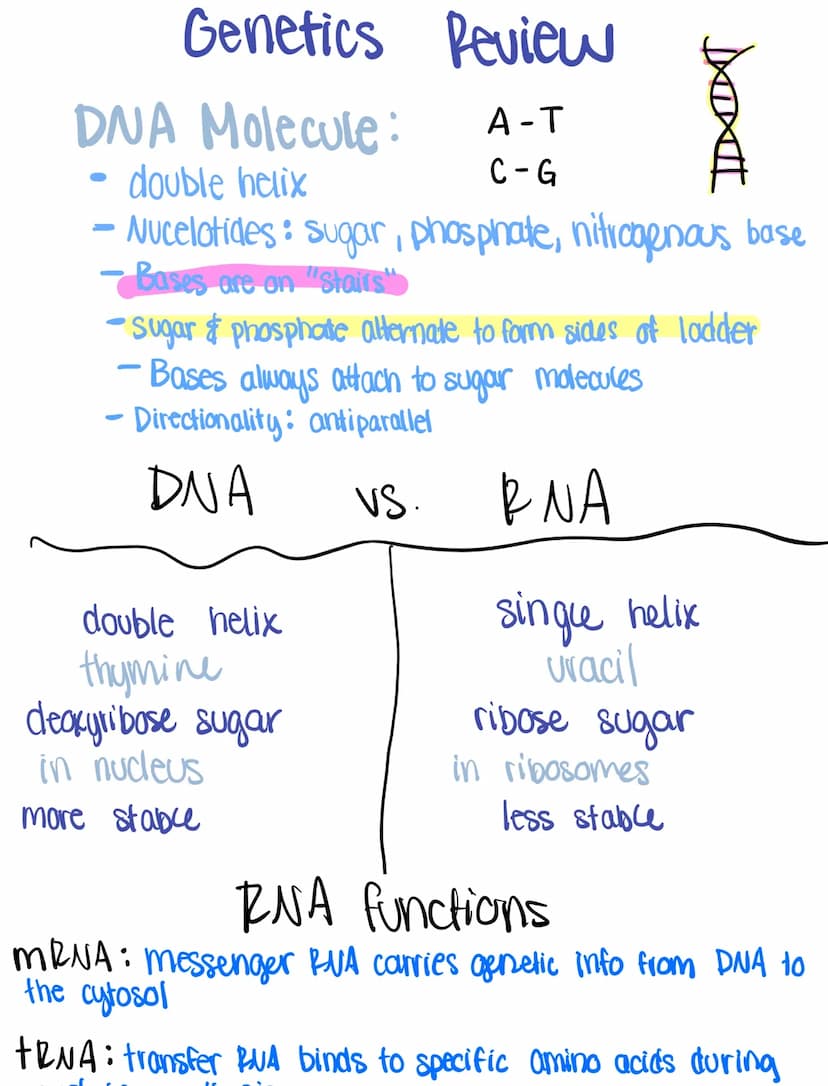 Genetics Review
DNA Molecule:
A-T
C-G
• double helix
- Nucelotides: sugar, phosphate, nitrogenous base
- Bases are on "stairs"
- Sugar & phosphate alternate to form sides of ladder
- Bases always attach to sugar molecules
- Directionality: antiparallel
DNA vs. RNA
double helix
thymine
deoxyribose sugar
in nucleus
more stable
single helix
uracil
ribose sugar
in ribosomes
less stable
RNA functions
mRNA: messenger RNA carries genetic info from DNA to
the cytosol
tRNA: transfer RNA binds to specific amino acids during